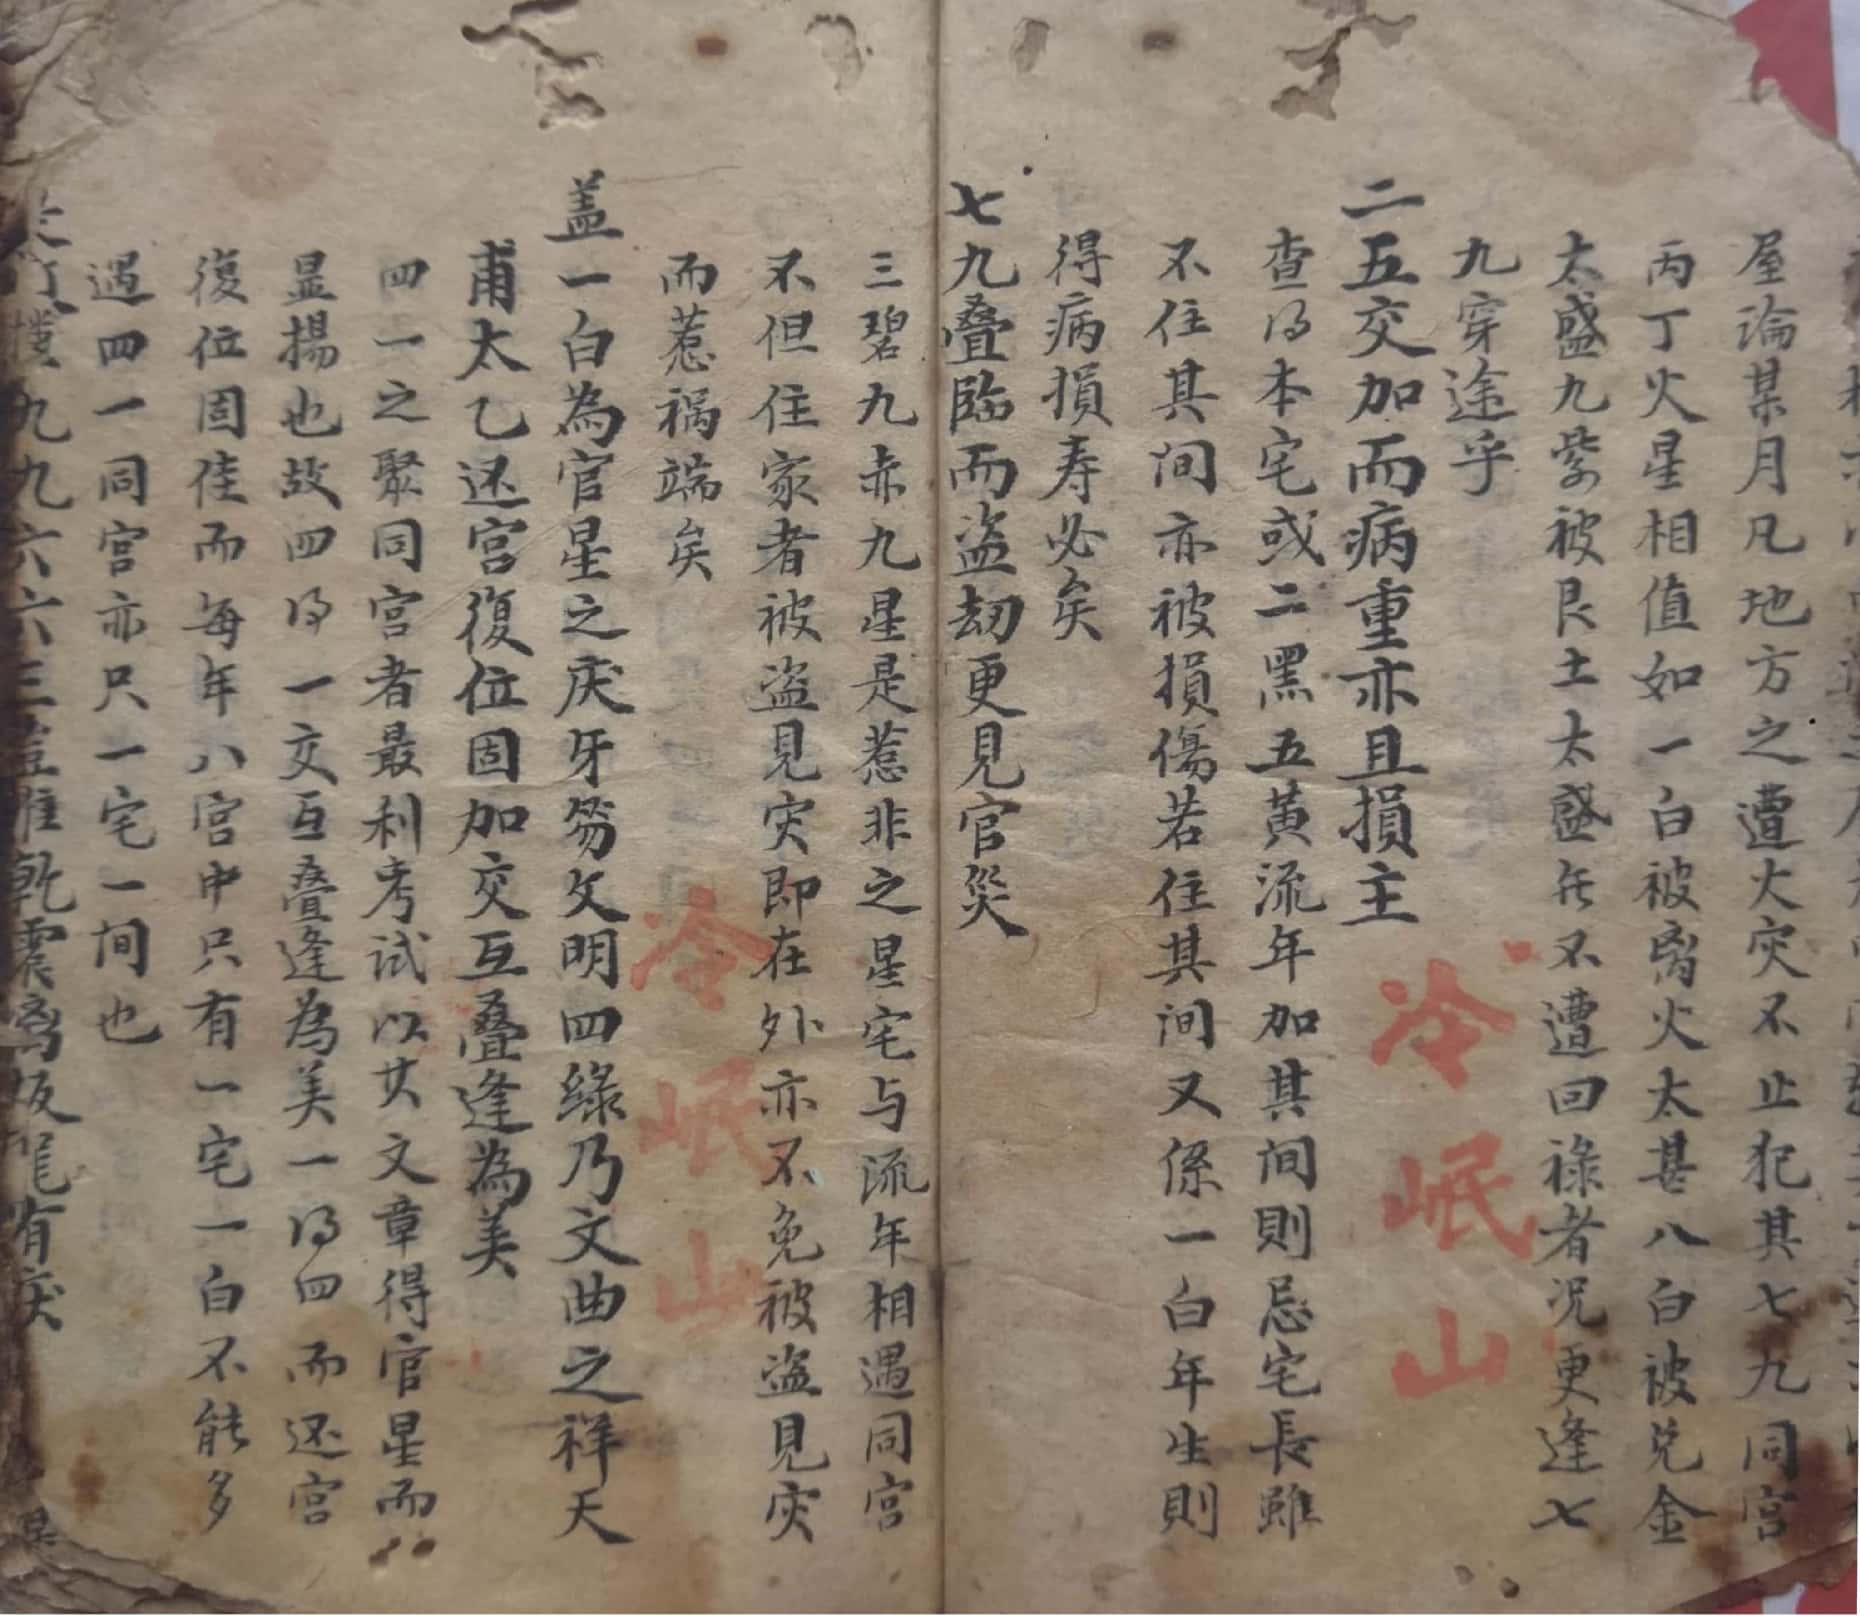 屋論某月凡地方之遭火灾不止犯其七九同宫
丙丁火星相值如一白被离火太甚八白被兑金
太盛九紫被艮土太盛无不遭回祿者况更逢七
九穿途乎
二五交加而病重亦且損主
查得本宅或二黑五黄流年加其间則忌宅長雖
不住其间亦被損傷若住其间又係一白年生則
得病損寿必矣
七九叠臨而盗劫更見官災
三碧九赤九星是惹非之星宅与流年相遇同宫
不但住家者被盗見灾即在外亦不免被盗見灾
而惹禍端矣
盖一白為官星之庆牙笏文明四綠乃文曲之祥天
甫太乙还宫復位固加交互叠逢為美
四一之聚同宫者最利考試以其文章得官星而
显揚也故四得一交互叠逢為美一得四而还宫
復位固佳而每年八宫中只有一宅一白不能多
遇四一同宫亦只一宅一间也
九九六六三豈惟乾震离坂龍有庆
冷岷山
冷岷山